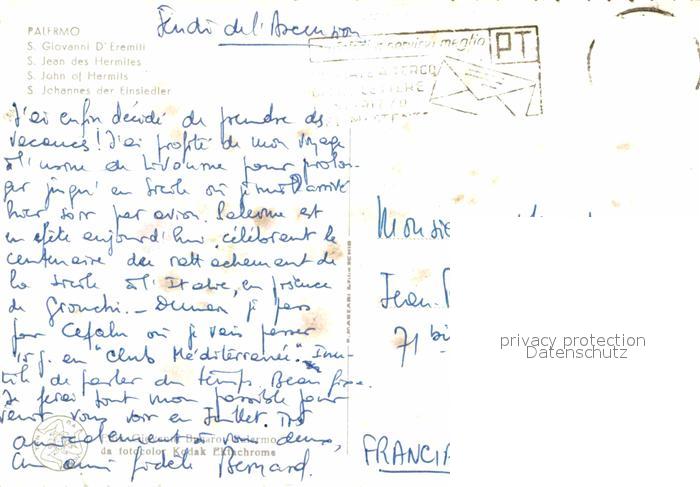 Jeudi de l'Ascension
PALERMO
S. Giovanni D'Eremiti
S. Jean des Hermites
S. John of Hermits
S. Johannes der Einsiedler
servirvi meglio
PT
J'ai enfin décidé de prendre des
vacances ! J'ai profité de mon voyage
à l'usine de Livourne pour prolon-
ger jusqu' en Sicile où je suis arrivé
hier soir par avion. Palerme est
en fête aujourd'hui célébrant le
centenaire du rattachement de
la Sicile à l'Italie, en présence
de Gronchi. - Demain je pars
pour Cefalu où je vais passer
15 j. en "Club Méditerranée". Inu-
tile de parler du temps. Beau fixe.
Je ferai tout mon possible pour
venir vous voir en Juillet. Très
amicalement à vous deux,
Un ami fidèle Bernard.
da fotocolor Kodak Ektachrome
Monsie
Jean-
71 bi
FRANCIA
privacy protection
Datenschutz